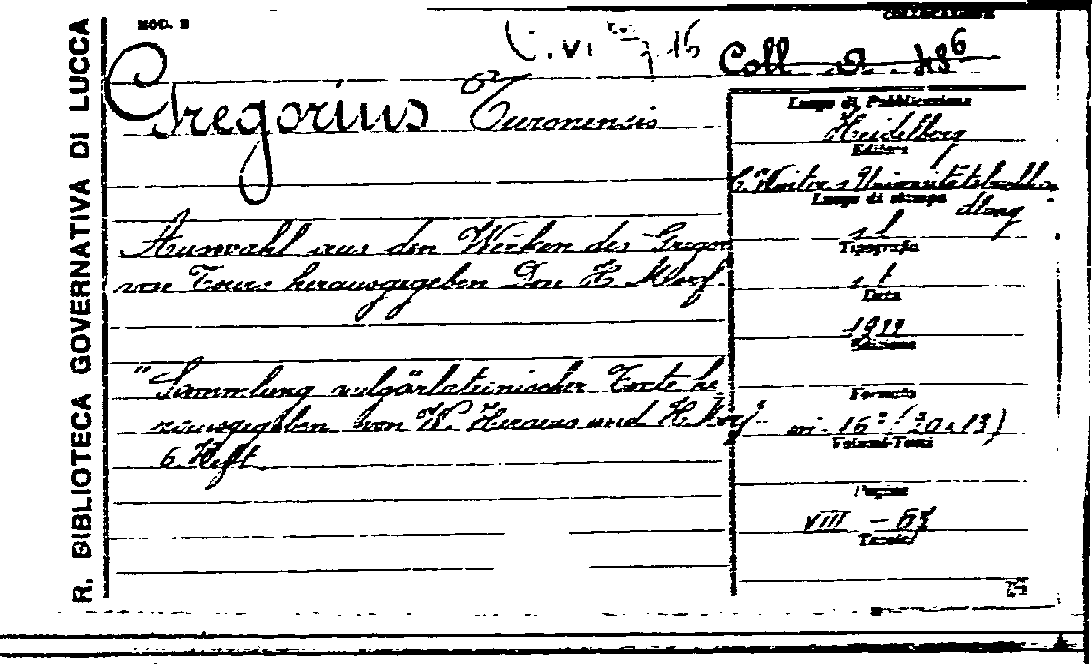 R. BIBLIOTECA GOVERNATIVA DI LUCCA
MOD. B
COLLOCAZIONE
VI 16
Coll. 6
Gregorius Turonensis
Auswahl aus den Werken des Gregor
von Tours herausgegeben Don H. Morf.
"Sammlung vulgärlateinischer Texte he
rausgegeben von W. Heraeus und H. Morf"
6. Heft
Luogo di Pubblicazione
Heidelberg
Editore
C. Winter's Universitätsbuchhan
dlung
Luogo di stampa
s. l.
Tipografia
s. t.
Data
Edizione
Formato
in-16° (20 x 13)
Volumi-Tomi
Pagine
VIII -
Tavole